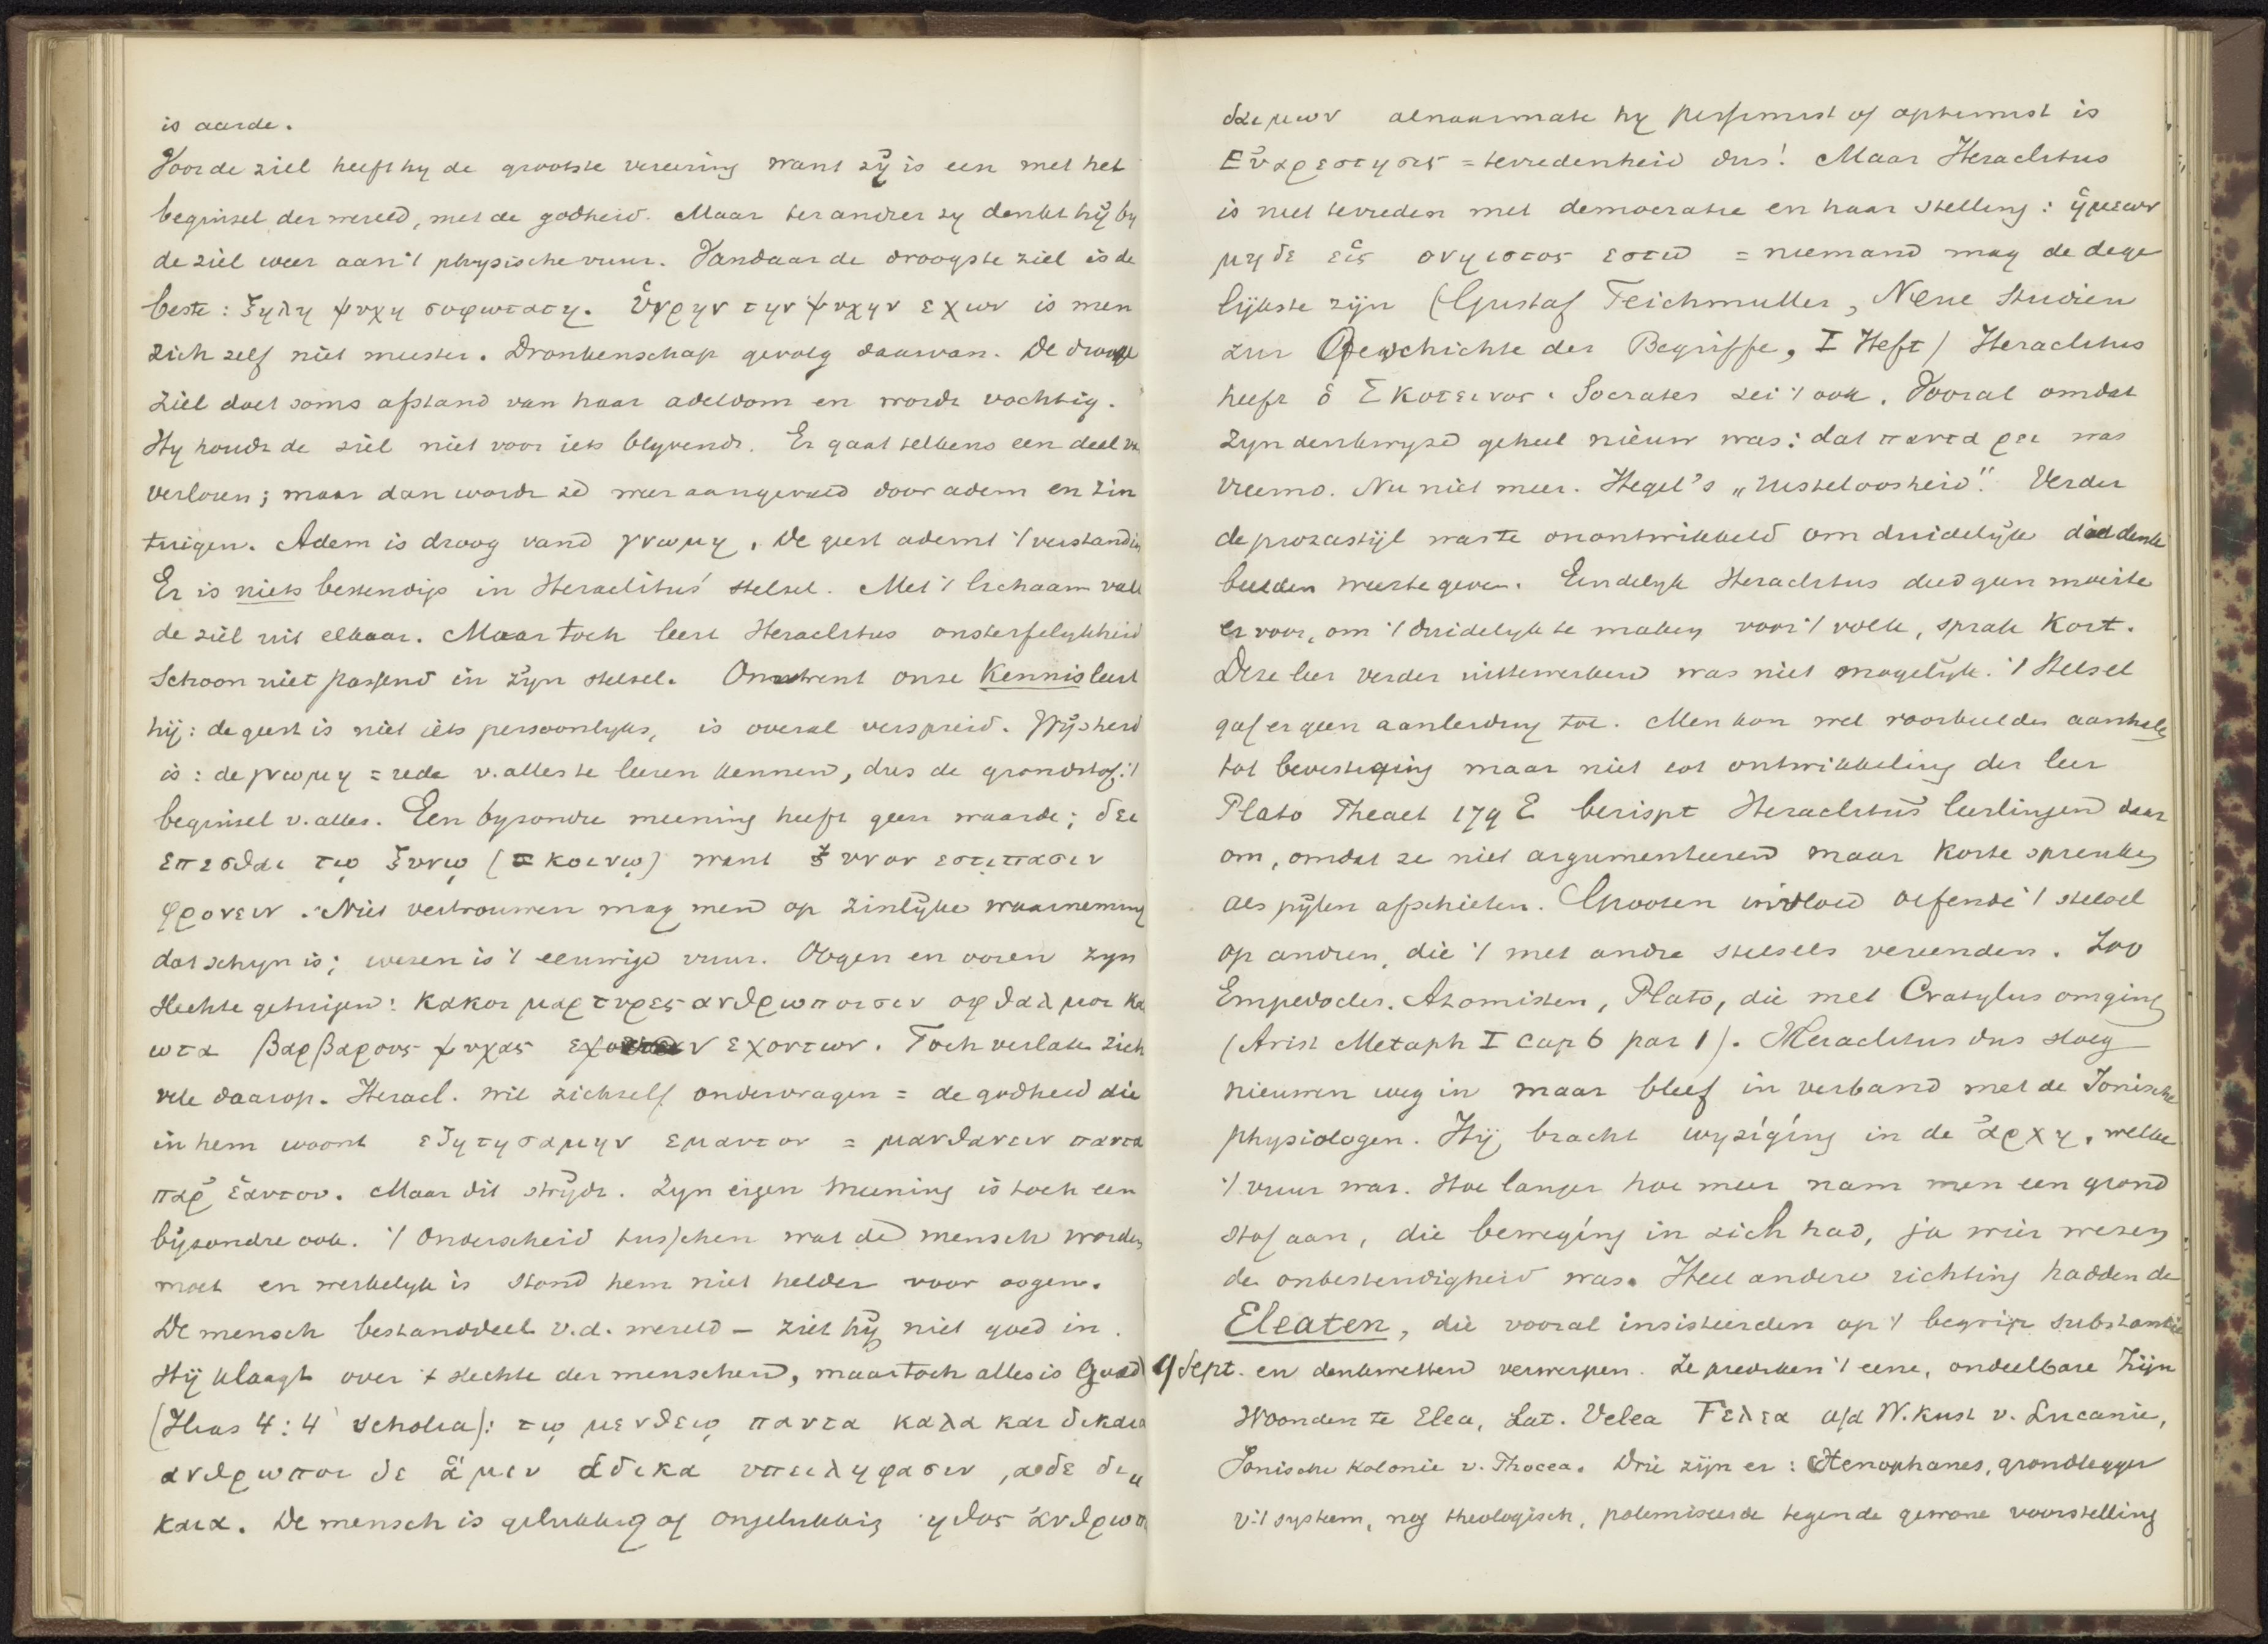 is aarde.
Voor de ziel heeft hy de grootste vereering want zÿ is een met het
beginsel der wereld, met de godheid. Maar ter andrer zy denkt hÿ by
de ziel weer aan 't physische vuur. Vandaar de droogste ziel is de
beste: ξηλη ψυχη σοφωτατη. ὑγρην την ψυχην εχων is men
zich zelf niet meester. Dronkenschap gevolg daarvan. De drooge
ziel doet soms afstand van haar adeldom en wordt vochtig.
Hy houdt de ziel niet voor iets blyvends. Er gaat telkens een deel v.
verloren; maar dan wordt ze weer aangevuld door adem en zin
tuigen. Adem is droog vand γνωμη. De geest ademt 't verstand in
Er is niets bestendigs in Heraclitus' stelsel. Met 't lichaam valt
de ziel uit elkaar. Maar toch leert Heraclitus onsterfelykheid
Schoon niet passend in zyn stelsel. Omtrent onze Kennis leert
hij: de geest is niet iets persoonlyks, is overal verspreid. Wÿsheid
is: de γνωμη = rede v. alles te leeren kennen, dus de grondstof. 't
beginsel v. alles. Een byzondre meening heeft geen waarde; δει
επεσθαι τῳ ξυνῳ (= κοινῳ) want ξυνον εστι πασιν
φρονειν. Niet vertrouwen mag men op zinlÿke waarneming
dat schyn is; wezen is 't eeuwige vuur. Oogen en ooren zyn
slechte getuigen: κακοι μαρτυρες ανθρωποισιν οφθαλμοι κα
ωτα βαρβαρους ψυχας εχοντων. Toch verlate zich
vele daarop. Heracl. wil zichzelf ondervragen = de godheid die
in hem woont εζητησαμην εμαυτον = μανθανειν παντα
παρ' ἑαυτου. Maar dit strÿdt. Zyn eigen meening is toch een
bÿzondre ook. 't Onderscheid tusschen wat de mensch worden
moet en werkelyk is stond hem niet helder voor oogen.
De mensch bestanddeel v.d. wereld – ziet hÿ niet goed in.
Hÿ klaagt over 't slechte der menschen, maar toch alles is Goed
(Ilias 4:4 scholia): τῳ μεν θεῳ παντα καλα και δικαια
ανθρωποι δε ἁ μεν αδικα υπειληφασιν, ἁ δε δι
καια. De mensch is gelukkig of ongelukkig ηθος ἀνθρωπ
δαιμων alnaarmate hy pessimist of optimist is
Εὐαρεστησις = tevredenheid dus! Maar Heraclitus
is niet tevreden met democratie en haar stelling: ἡμεων
μηδε εἱς ονηιστος εστω = niemand mag de dege
lÿkste zijn (Gustaf Teichmuller, Neue Studien
zur Geschichte der Begriffe, I Heft) Heraclitus
heeft ὁ Σκοτεινος. Socrates zei 't ook. Vooral omdat
zyn denkwyze geheel nieuw was: dat παντα ρει was
vreemd. Nu niet meer. Hegel's „rusteloosheid". Verder
de prozastijl was te onontwikkeld om duidelÿk die denk
beelden weer te geven. Eindelyk Heraclitus deed geen moeite
er voor, om 't duidelyk te maken voor 't volk, sprak kort.
Deze leer verder uit te werken was niet mogelÿk. 't Stelsel
gaf er geen aanleiding toe. Men kon wel voorbeelden aanhalen
tot bevestiging maar niet tot ontwikkeling der leer
Plato Theaet 179 E berispt Heraclitus' leerlingen daar
om, omdat ze niet argumenteeren maar korte spreuken
als pÿlen afschieten. Grooten invloed oefende 't stelsel
op andren, die 't met andre stelsels vereenden. Zoo
Empedocles. Atomisten, Plato, die met Cratylus omging
(Arist Metaph I cap 6 par 1). Heraclitus dus sloeg
nieuwen weg in maar bleef in verband met de Ionische
physiologen. Hÿ bracht wyziging in de ἀρχη, welke
't vuur was. Hoe langer hoe meer nam men een grond
stof aan, die beweging in zich had, ja wier wezen
de onbestendigheid was. Heel andere richting hadden de
Eleaten, die vooral insisteerden op 't begrip substantie
9 Sept. en denkwetten verwerpen. Ze prediken 't eene, ondeelbare Zÿn
Woonden te Elea, Lat. Velea Ϝελεα a/d W. kust v. Lucanie,
Ionische kolonie v. Phocea. Drie zÿn er: Xenophanes, grondlegger
v. 't systeem, nog theologisch, polemiseerde tegen de gewone voorstelling